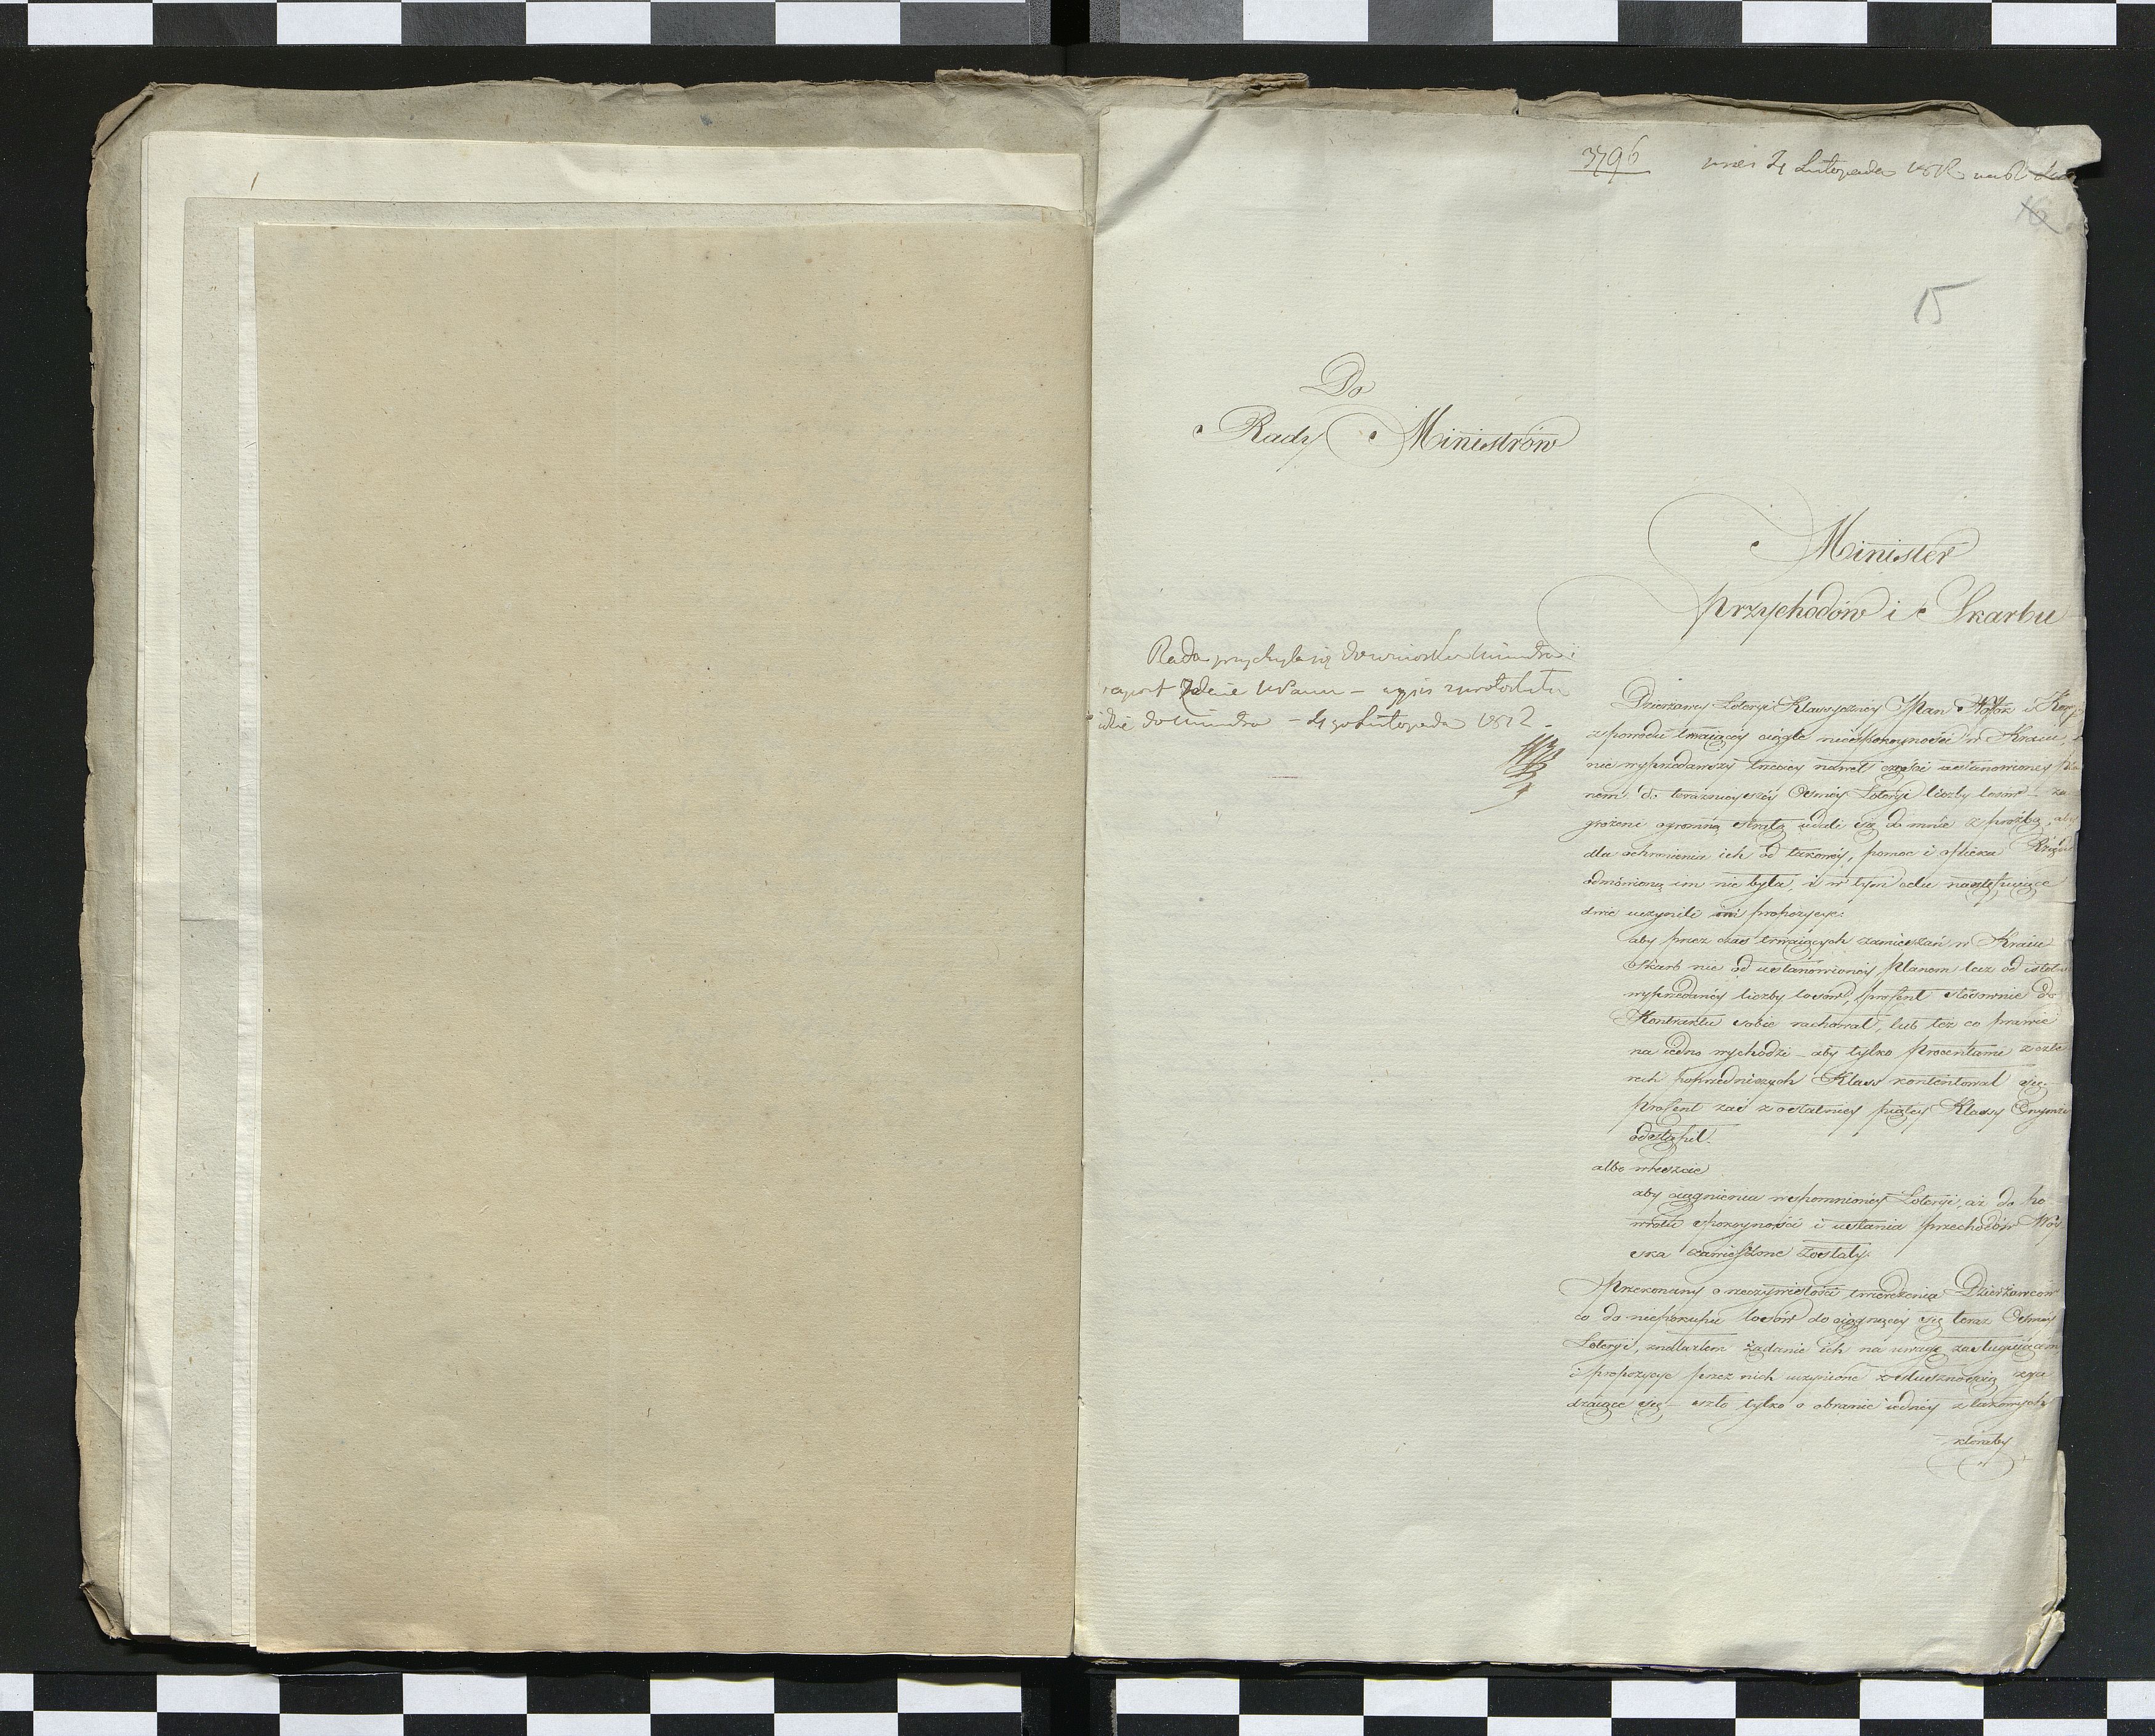 3796 wnes. 24 Listopada 1812
16
15
Do
Rady Ministrów
Minister
Przychodów i Skarbu
Rada przychyla się do wniosku Ministra i
raport idzie
idzie do Ministra – 24go Listopada 1812.
Dzierzawcy Loteryi Klassyczney
z powodu trwaiącéy ciągle niespokoyności w Kraiu,
nie wyprzedawszy trzeciey nawet części ustanowioney Pla
nem do teraźnieyszéy Osméy Loteryi liczby losów – za
grożeni ogromną stratą udali się do mnie z prozbą, aby
dla ochronienia ich od takowéy, pomoc i opieka Rządu
odmówioną im nie była, i w tym celu następuiące
dwie uczynili mi propozycye:
aby przez czas trwaiących zamieszań w Kraiu
Skarb nie od ustanowionéy Planem lecz od istotnie
wyprzedanéy liczby losów, procent stosownie do
Kontraktu sobie rachował, lub też co prawie
na iedno wychodzi – aby tylko Procentami z czte
rech poprzedniczych Klass kontentował się,
Procent zaś z ostatniey piątey Klassy
odstąpił.
albo wreszcie
aby ciągnienia wspomnionéy Loteryi, aż do po
wrotu spokoyności i ustania przechodów Woy
ska zawieszone zostały.
Przekonany o rzeczywistości twierdzenia Dzierżawców
co do niepokupu losów do ciągnącéy się teraz Osméy
Loteryi, znalazłem żądanie ich na uwagę zasługuiącem,
i propozycye przez nich uczynione z słusznością zga
dzaiące się – szło tylko o obranie iednéy z takowych
któraby